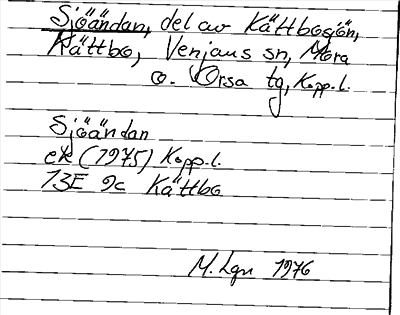 Sjöändan, del av Kättbosjön,
Kättbo, Venjans sn, Mora
o. Orsa tg, Kopp.l.
Sjöändan
ek (1975) Kopp.l.
13E 9c Kättbo
M. Lgn 1976